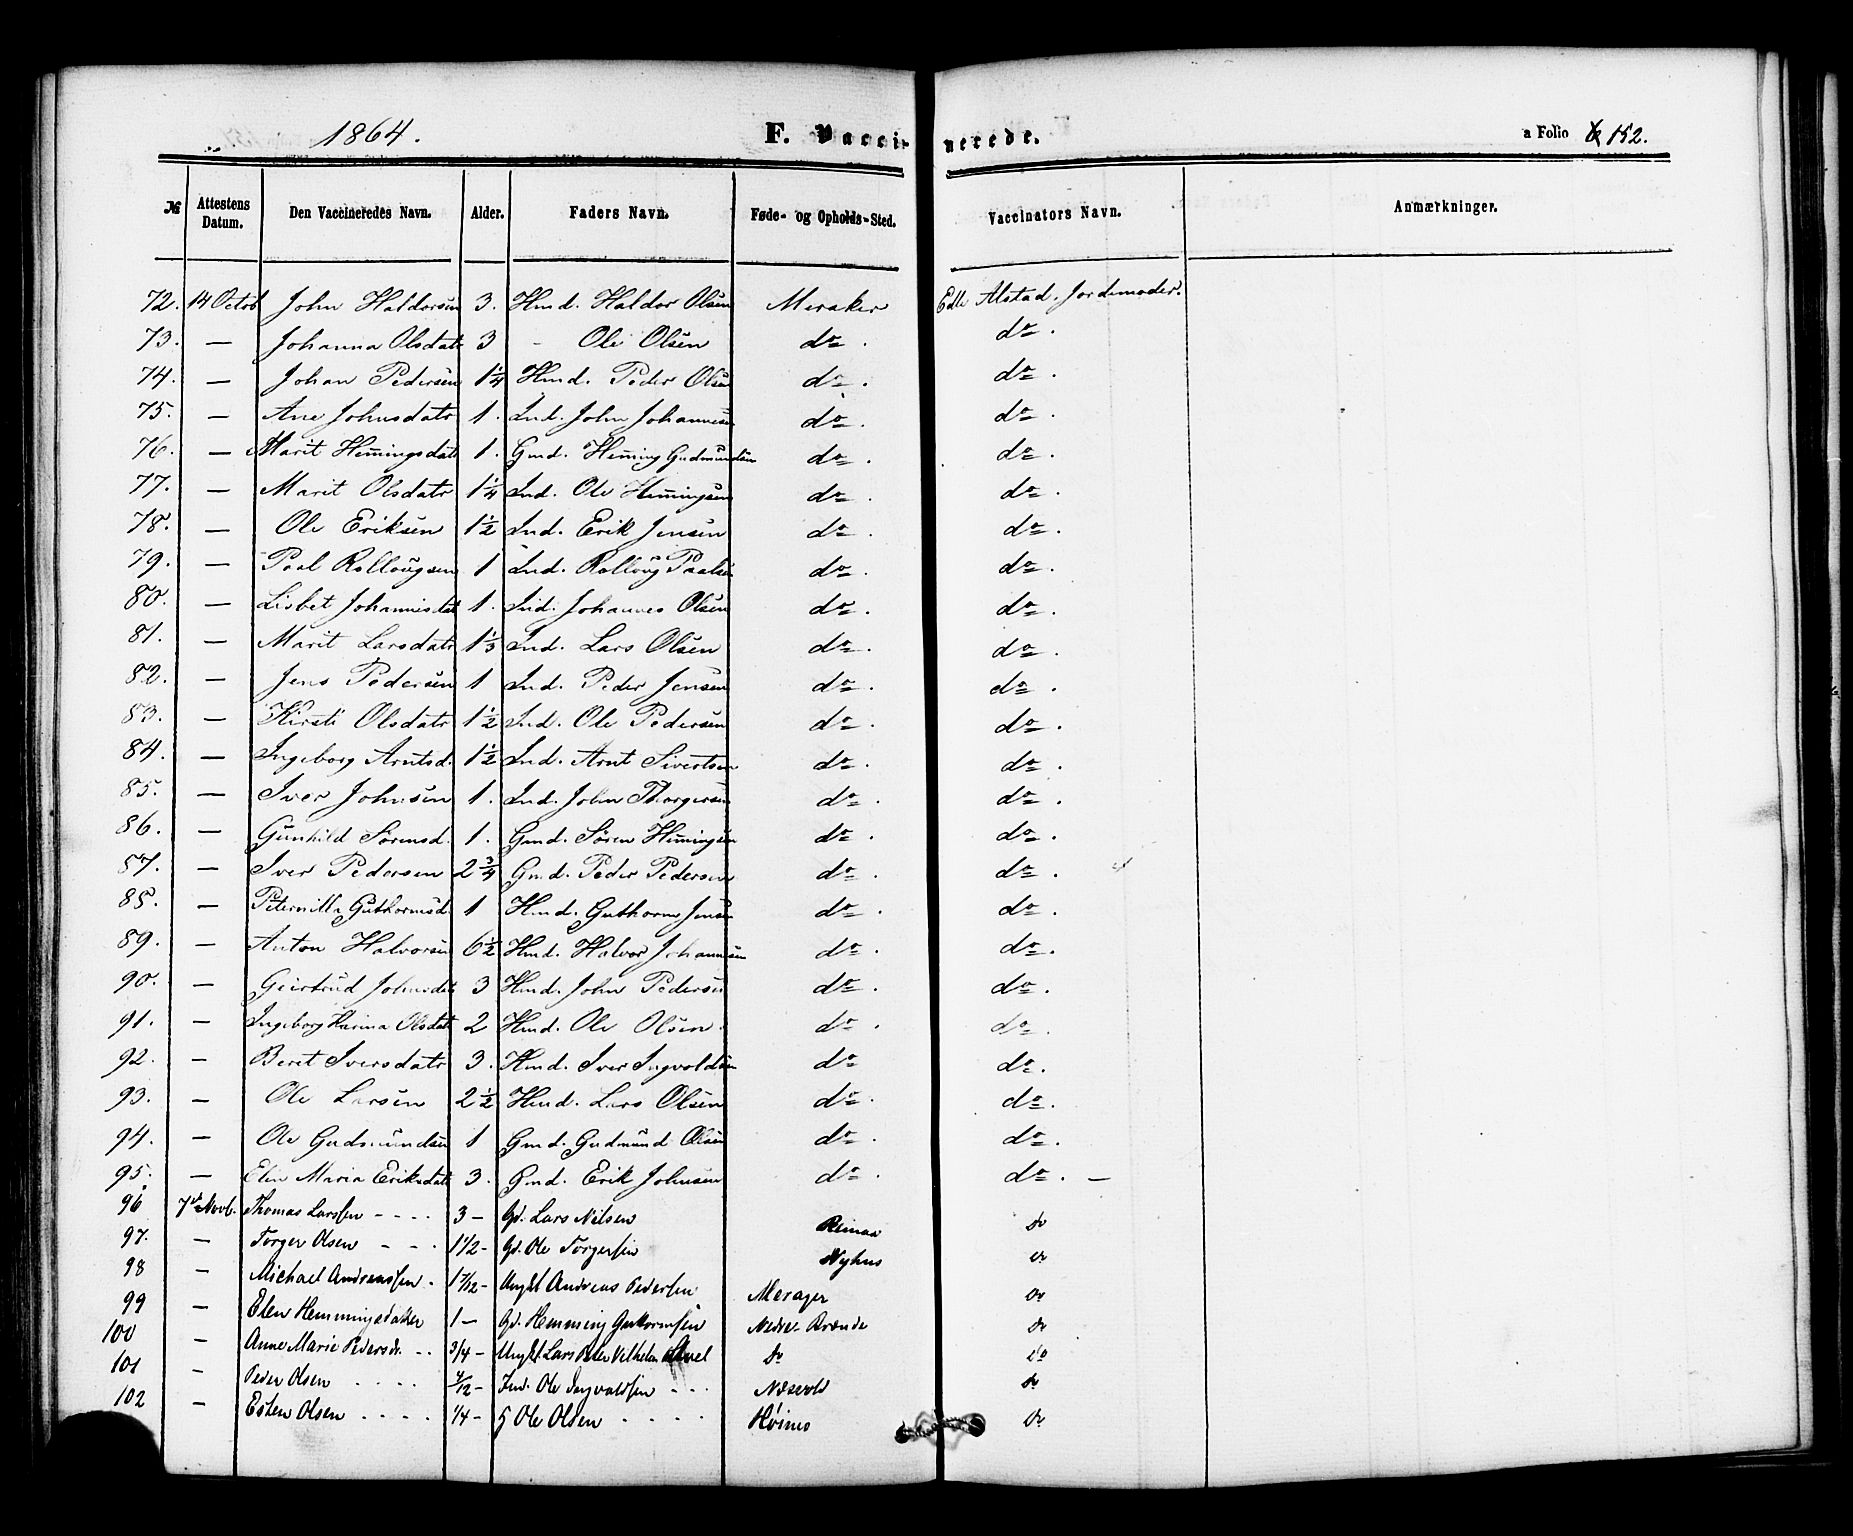 1864.
F. Vaccinerede.
a Folio 152.
№ Attestens Datum. Den Vaccineredes Navn. Alder. Faders Navn. Føde- og Opholds-Sted. Vaccinators Navn. Anmærkninger.
72. 14 Octob John Haldorsen 3. Hmd. Haldor Olsen Meraker Alstad. Jordemoder.
73. — Johanna Olsdatr 3 - Ole Olsen do. do.
74. — Johan Pedersen 1 1/4 Hmd. Peder Olsen do. do.
75. — Ane Johnsdatr 1. Ind. John Johannesen do. do.
76. — Marit Hemingsdatr 1. Gmd. Heming Gudmundsen do. do.
77. — Marit Olsdatr 1 1/4 Ind. Ole Hemingsen do. do.
78. — Ole Eriksen 1 1/2 Ind. Erik Jensen do. do.
79. — Paal Rollougsen 1 Ind. Rolloug Paalsen do. do.
80. — Lisbet Johannisdat 1. Ind. Johannes Olsen do. do.
81. — Marit Larsdatr 1 1/3 Ind. Lars Olsen do. do.
82. — Jens Pedersen 1 Ind. Peder Jensen do. do.
83. — Kirsti Olsdatr 1 1/2 Ind. Ole Pedersen do. do.
84. — Ingeborg Arntsd. 1 1/2 Ind. Arnt Sivertsen do. do.
85. — Iver Johnsen 1. Ind. John Thorgersen do. do.
86. — Gunhild Sørensd. 1. Gmd. Søren Hemingsen do. do.
87. — Iver Pedersen 2 3/4 Gmd. Peder Pedersen do. do.
88. — Peternille Guthormsd. 1 Hmd. Guthorm Jensen do. do.
89. — Anton Halvorsen 6 1/2 Hmd. Halvor Johannsen do. do.
90. — Geirtrud Johnsdat 3 Hmd. John Pedersen do. do.
91. — Ingeborg Karina Olsdat 2 Hmd. Ole Olsen. do. do.
92. — Beret Iversdatr 3. Hmd. Iver Ingvoldsen do do.
93. — Ole Larsen 2 1/2 Hmd. Lars Olsen do. do.
94. — Ole Gudmundsen 1 Gmd. Gudmund Olsen do. do.
95. — Elen Maria Eriksdat 3. Gmd. Erik Johnsen do. do. —
96 7de Novb. Thomas Larssen - - - - 3 - Gd. Lars Nilsen do
97. — Torger Olsen - - - 1 1/2 - Gd. Ole Torgersen Nyhus do
98 — Michael Andreassen . 1 7/12 - Ungkl Andreas Pedersen Merager do
99 — Elen Hemmingsdatter 1 — Gd. Hemming Guttormsen Nedre- Brænde do
100 — Anne Marie Pedersdr. .. 3/4 - Ungkl Lars Peter Vilhelm do do
101 — Peder Olsen . . . . /12 - Ind. Ole Ingvaldsen - - . Næsvold do
102 — Esten Olsen . . . . 1/4 - Ole Olsen . . . . do